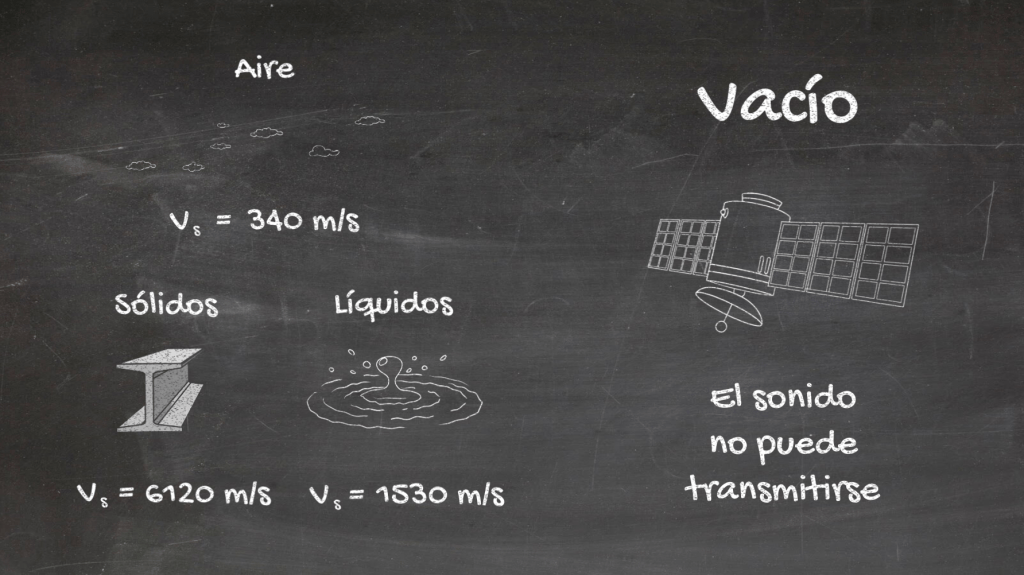 Aire
Vs = 340 m/s
Sólidos
Líquidos
Vs = 6120 m/s
Vs = 1530 m/s
Vacío
El sonido
no puede
transmitirse